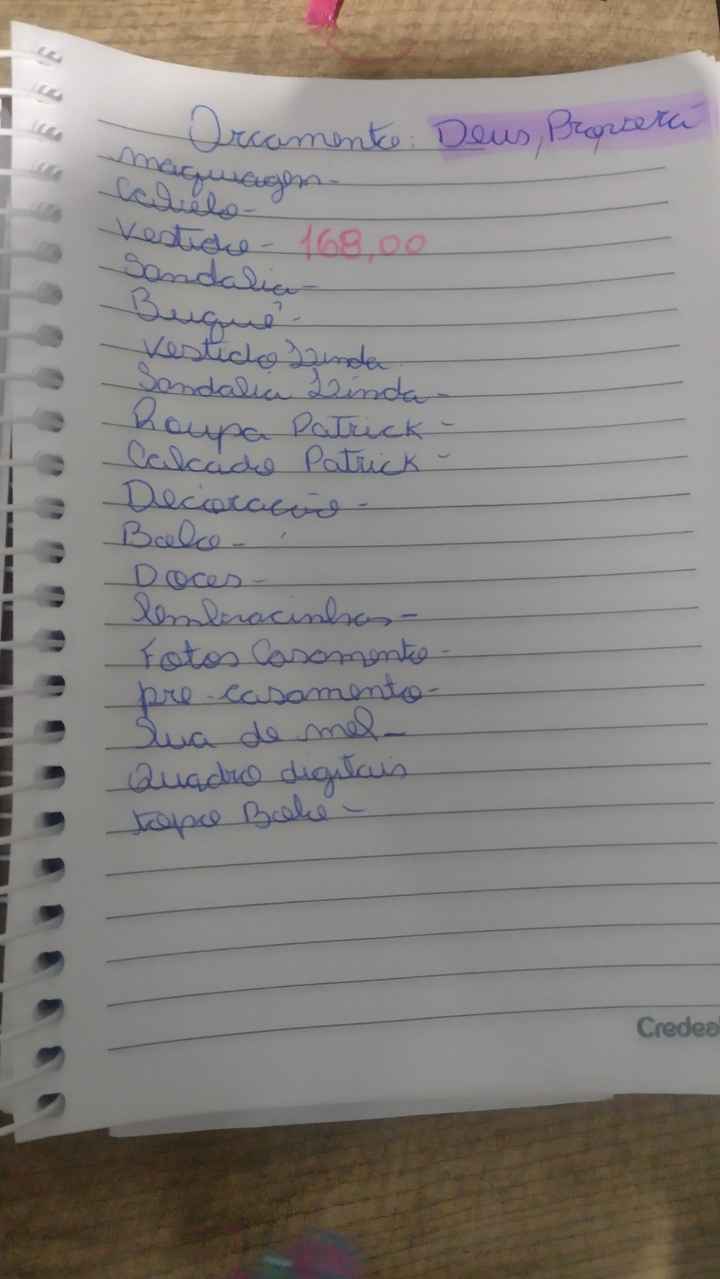 Orcamento: Deus, Proverá
maquiagem -
Cabelo -
Vestido - 168,00
Sandalia -
Buquê -
Vestido
Sandalia
Roupa Patrick -
Calcado Patrick -
Decoracão -
Bolo -
Doces -
lembracinhas -
Fotos Casamento -
pre-casamento -
Lua de mel -
Quadro digitais
topo Bolo -
Credea